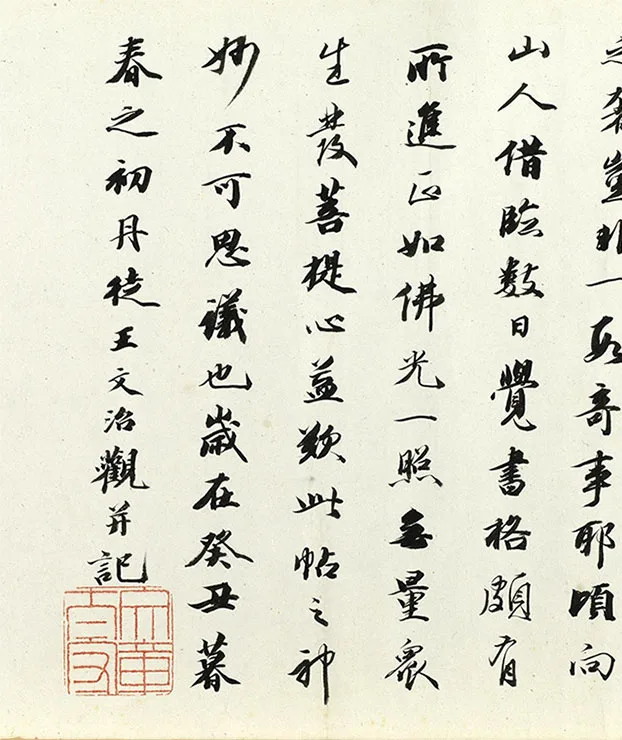 豈非一段奇事耶頃向
山人借臨數日覺書格頗有
所進正如佛光一照無量眾
生發菩提心益歎此帖之神
妙不可思議也歲在癸丑暮
春之初丹徒王文治觀并記